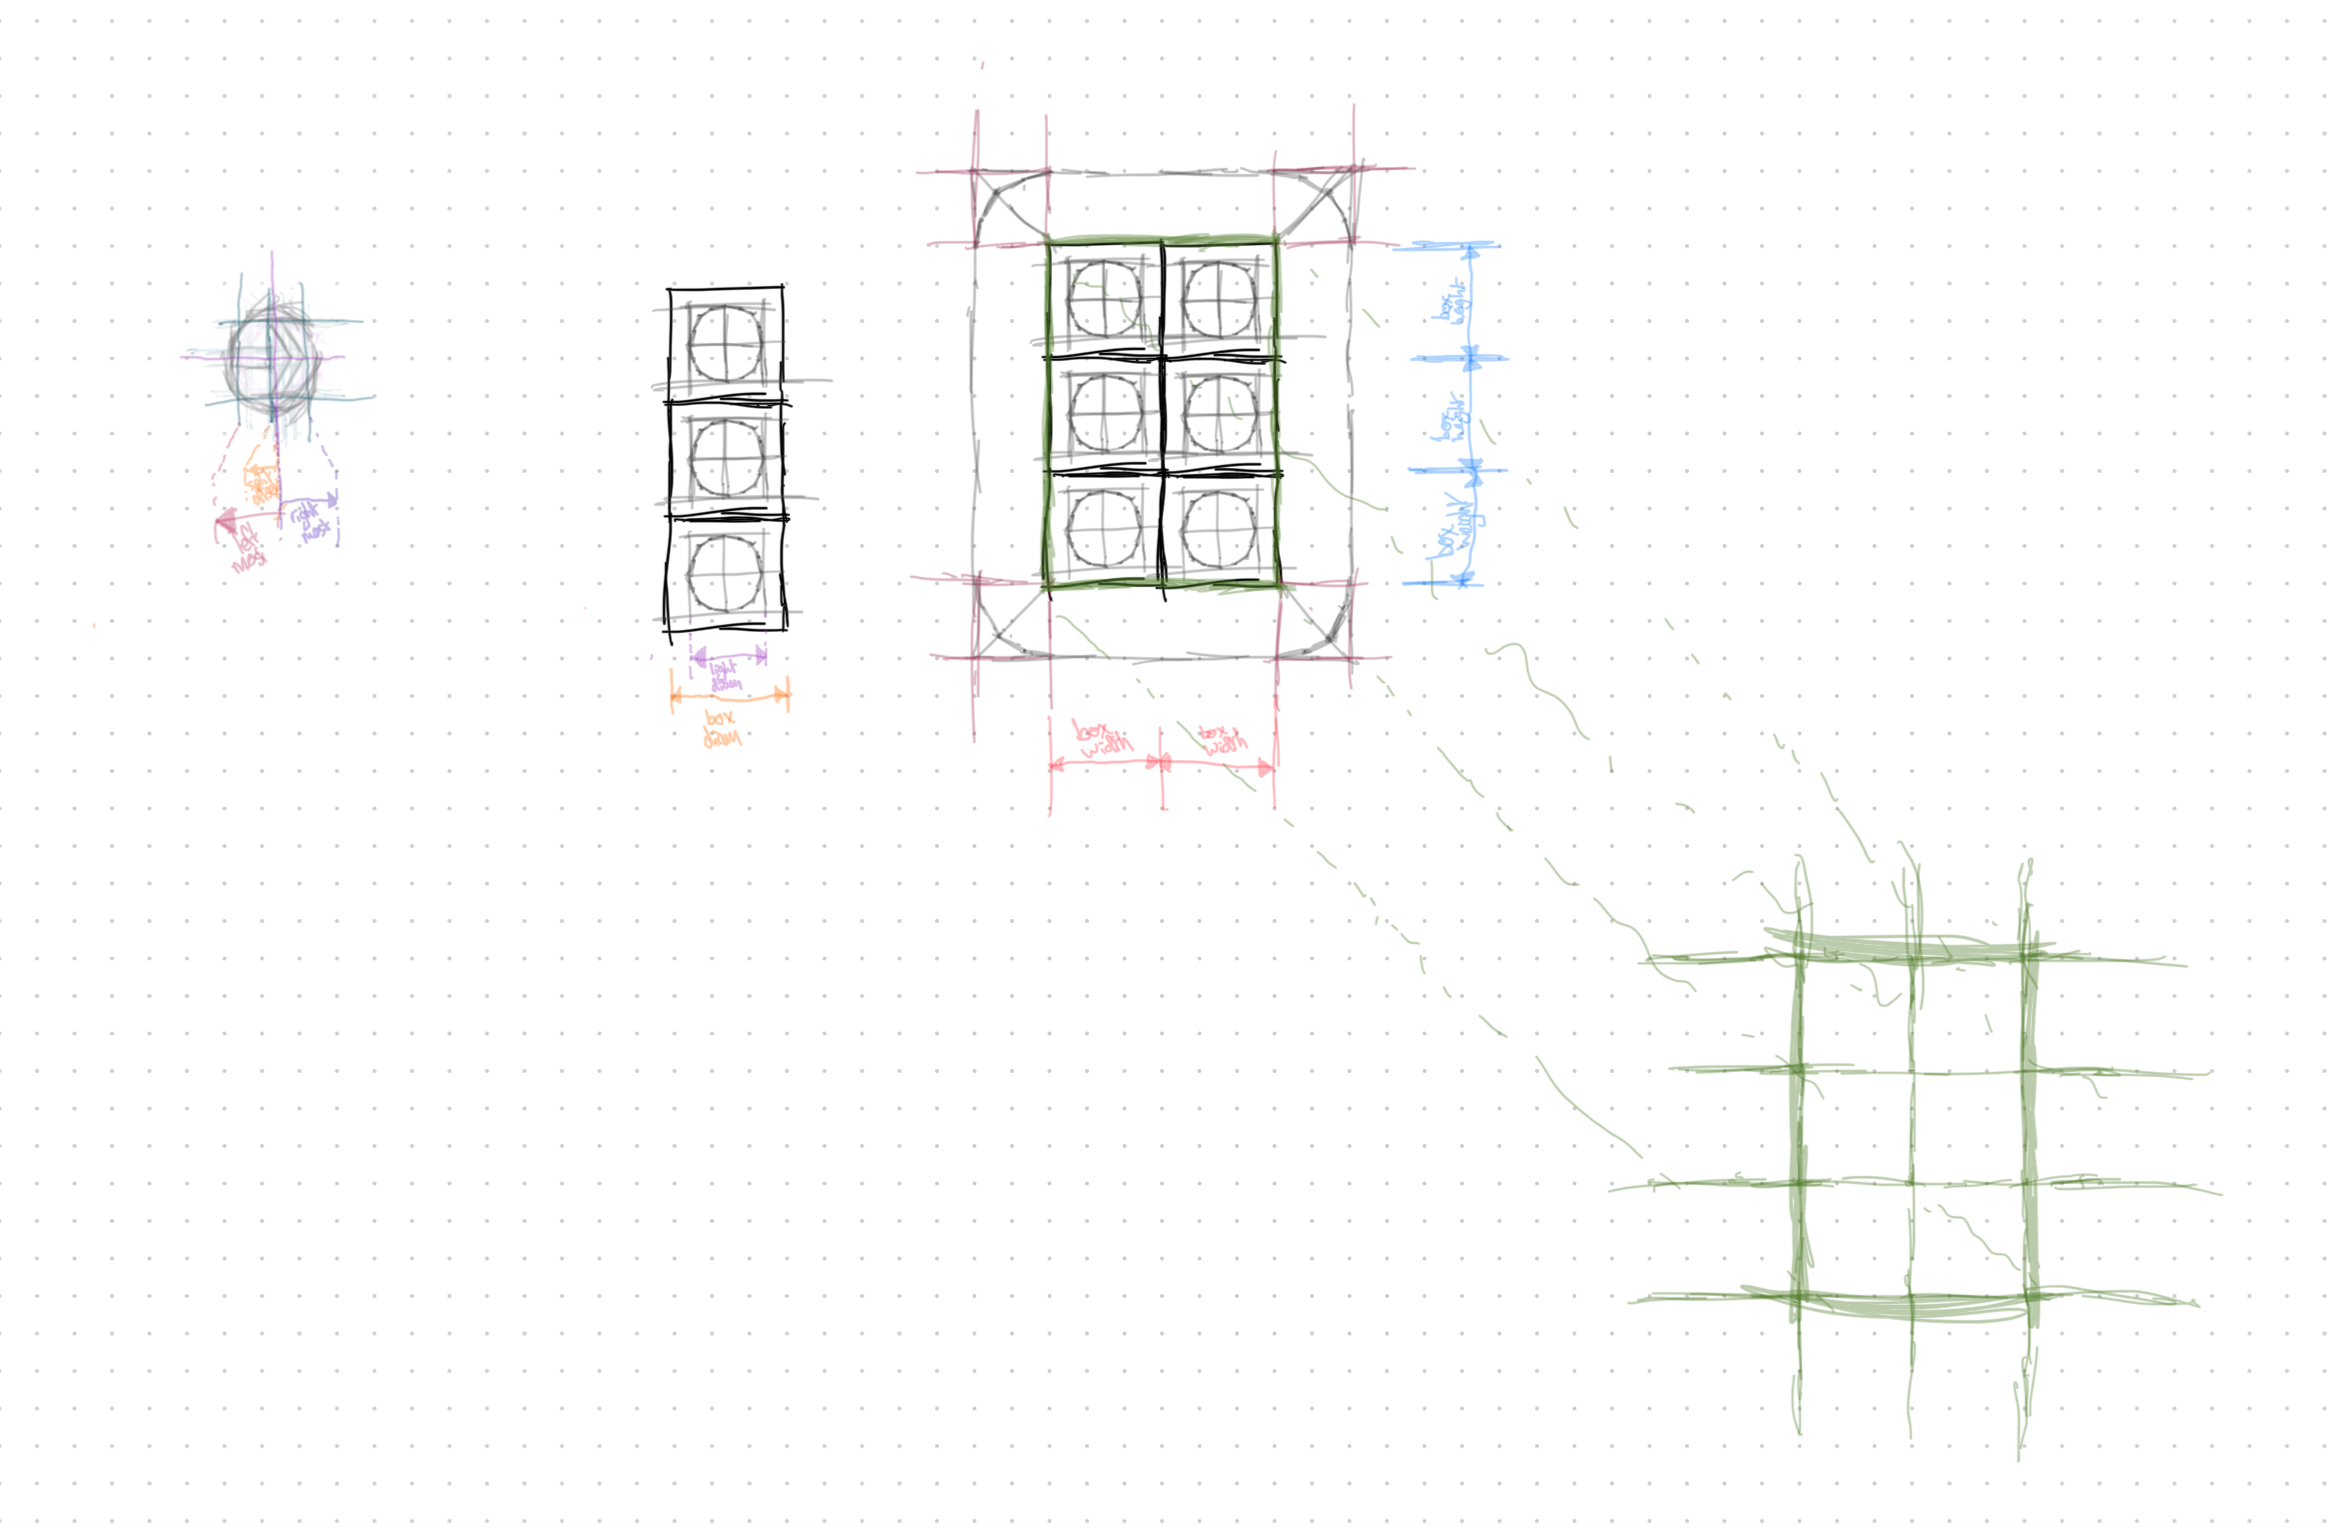 left
most
right
most
light
diam
box
diam
box
width
box
width
box
height
box
height
box
height